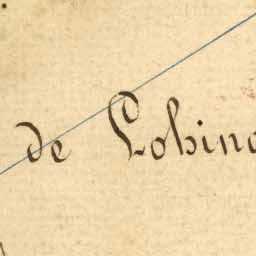 de Lobino